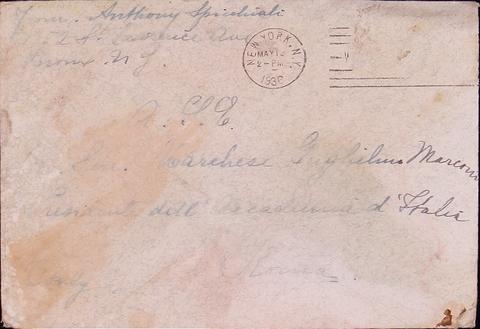 From. Anthony
St Lawrence Ave
Bronx N.Y.
NEW YORK, N.Y.
MAY
2-PM
1930
A. S. E.
Marchese Guglielmo Marconi
Presidente dell' Accademia d'Italia
Roma
Italy